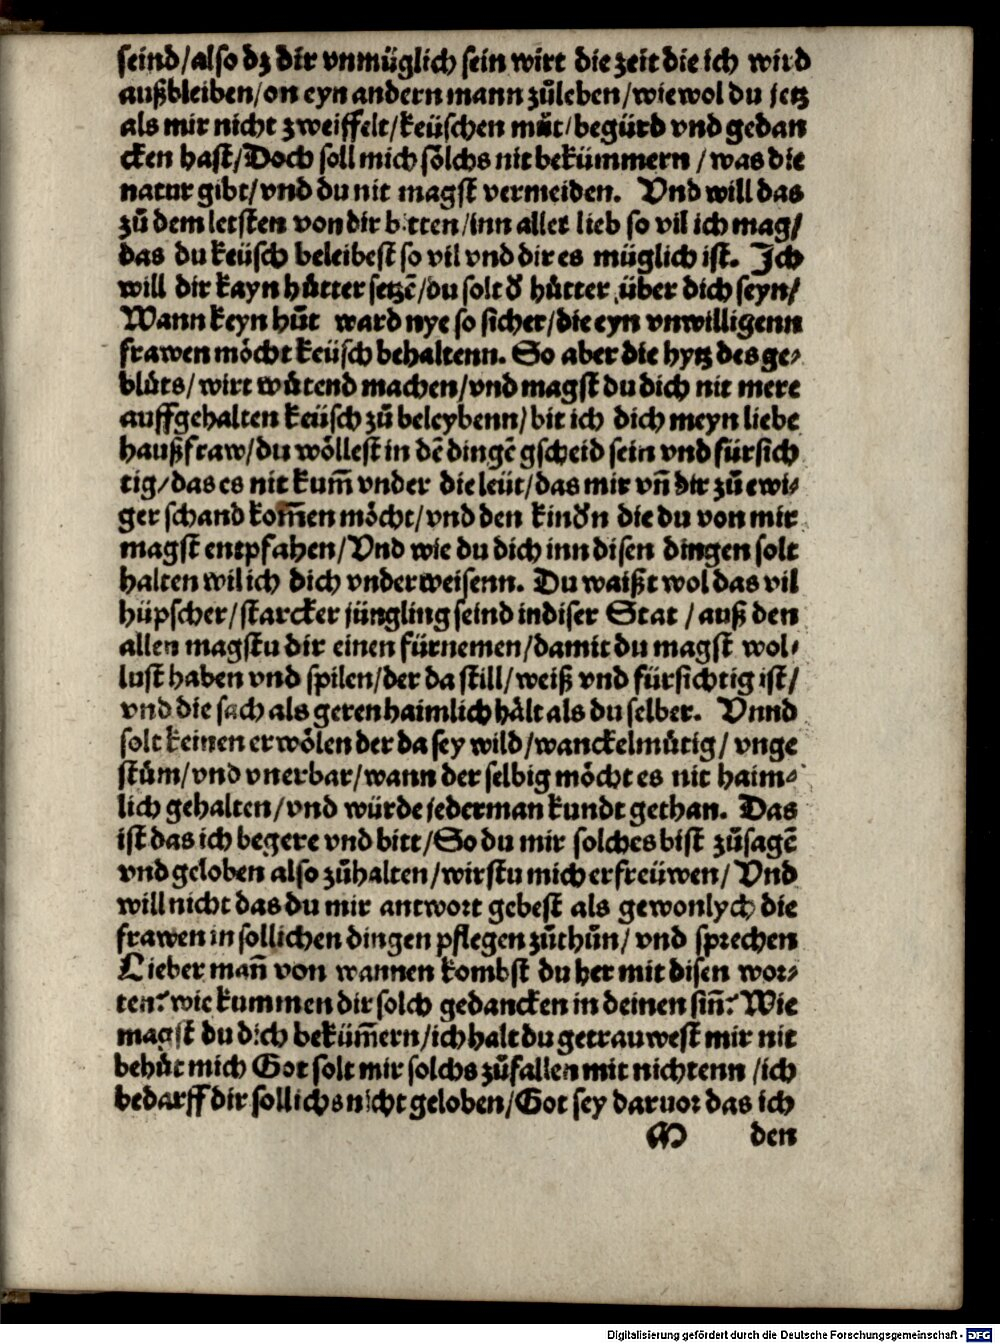 seind/also dz dir vnmüglich sein wirt die zeit die ich wird
außbleiben/on eyn andern mann zůleben/wiewol du jetz
als mir nicht zweiffelt/keüschen můt/begürd vnd gedan
cken hast/Doch soll mich sölchs nit bekümmern/was die
natur gibt/vnd du nit magst vermeiden. Vnd will das
zů dem letsten von dir bitten/inn aller lieb so vil ich mag/
das du keüsch beleibest so vil vnd dir es müglich ist. Ich
will dir kayn hůtter setzē/du solt d̕ hůtter über dich seyn/
Wann keyn hůt ward nye so sicher/die eyn vnwilligenn
frawen möcht keüsch behaltenn. So aber die hytz des ge⸗
blůts/wirt wůtend machen/vnd magst du dich nit mere
auffgehalten keüsch zů beleybenn/bit ich dich meyn liebe
haußfraw/du wöllest in dē dingē gscheid sein vnd fürsich
tig/das es nit kum̄ vnder die leüt/das mir vn̄ dir zů ewi⸗
ger schand kom̄en möcht/vnd den kind̕n die du von mir
magst entpfahen/Vnd wie du dich inn disen dingen solt
halten wil ich dich vnderweisenn. Du waißt wol das vil
hüpscher/starcker jüngling seind in diser Stat/auß den
allen magstu dir einen fürnemen/damit du magst wol⸗
lust haben vnd spilen/der da still/weiß vnd fürsichtig ist/
vnd die sach als geren haimlich hält als du selber. Vnnd
solt keinen erwölen der da sey wild/wanckelmůtig/vnge
stům/vnd vnerbar/wann der selbig möcht es nit haim⸗
lich gehalten/vnd würde jederman kundt gethan. Das
ist das ich begere vnd bitt/So du mir solches bist zůsagē
vnd geloben also zůhalten/wirstu mich erfreüwen/Vnd
will nicht das du mir antwort gebest als gewonlych die
frawen in sollichen dingen pflegen zůthůn/vnd sprechen
Lieber man̄ von wannen kombst du her mit disen wor⸗
ten? wie kummen dir solch gedancken in deinen sin̄? Wie
magst du dich beküm̄ern/ich halt du getrauwest mir nit
behůt mich Got solt mir solchs zůfallen mit nichtenn/ich
bedarff dir sollichs nicht geloben/Got sey daruor das ich
M den
Digitalisierung gefördert durch die Deutsche Forschungsgemeinschaft - DFG